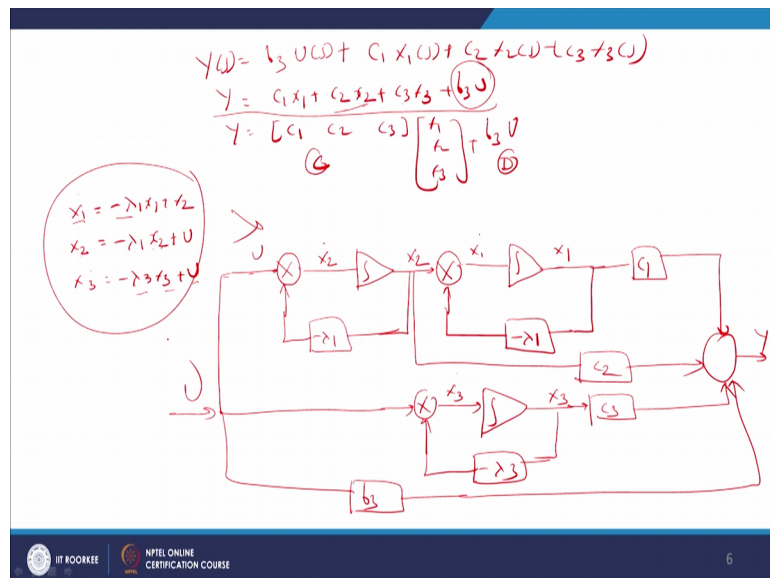 Y(s) = b3 U(s) + C1 x1(s) + C2 x2(s) + C3 x3(s)
Y = C1x1 + C2x2 + C3x3 + b3U
Y = [C1 C2 C3] [x1 x2 x3] + b3 U
C D
ẋ1 = -λ1x1 + x2
ẋ2 = -λ1x2 + U
ẋ3 = -λ3x3 + U
U X ẋ2 ∫ x2 X ẋ1 ∫ x1 C1
-λ1 -λ1
Y
C2
U
X ẋ3 ∫ x3 C3
-λ3
b3
IIT ROORKEE NPTEL ONLINE
CERTIFICATION COURSE
6